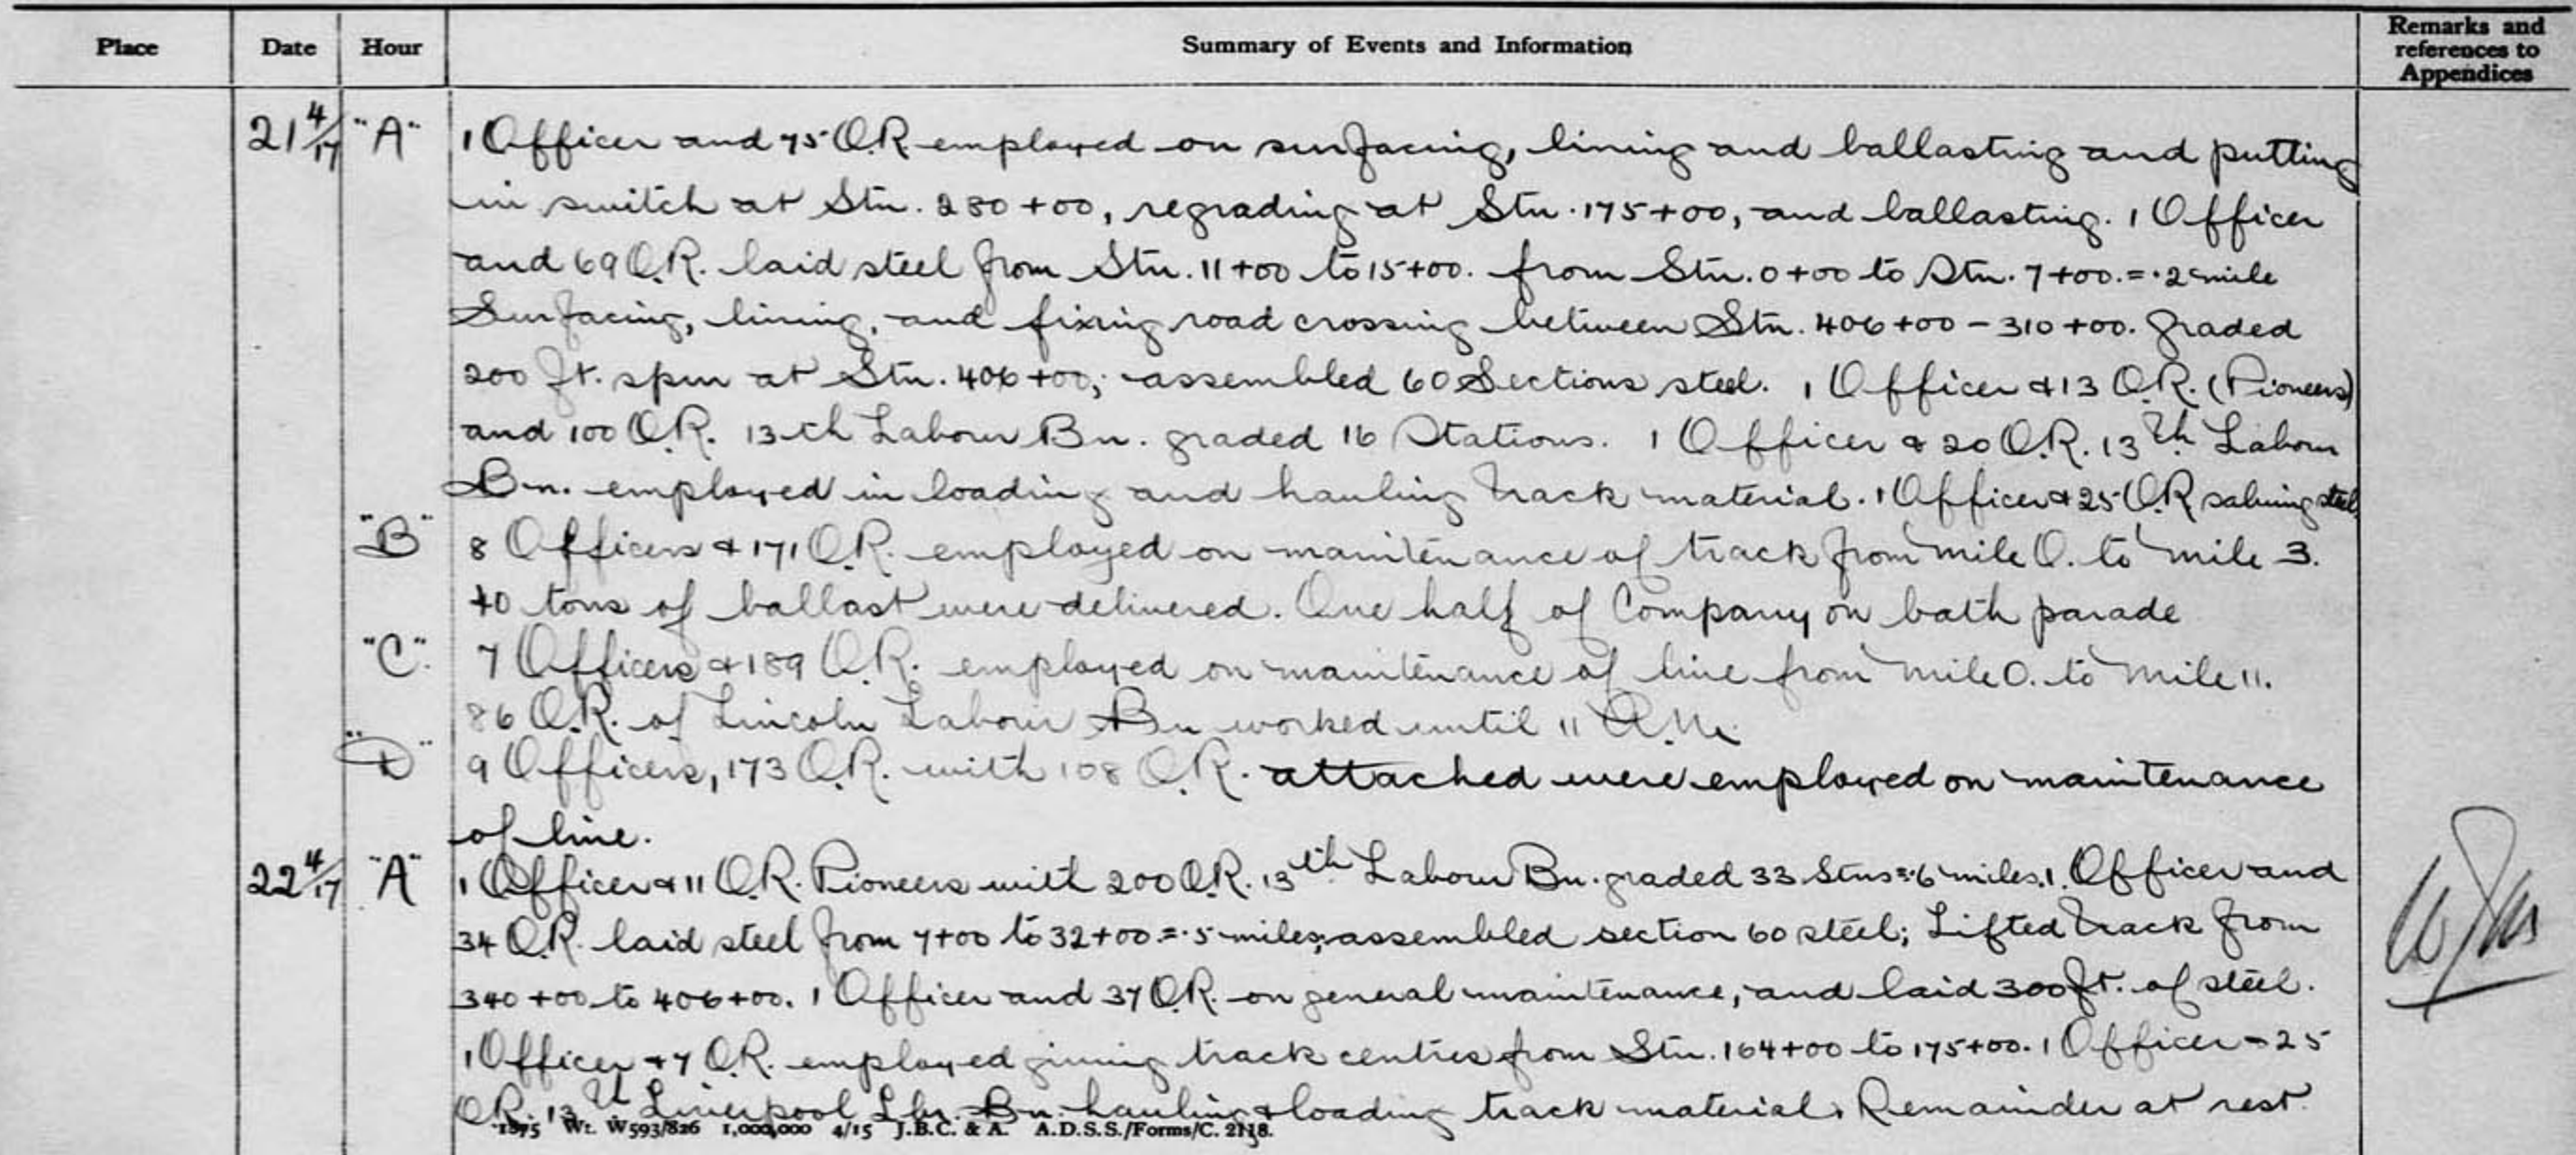 Place Date Hour Summary of Events and Information Remarks and references to Appendices
21 4/17 "A" 1 Officer and 75 O.R. employed on surfacing, lining and ballasting and putting
in switch at Stn. 280+00, regrading at Stn. 175+00, and ballasting. 1 Officer
and 69 O.R. laid steel from Stn. 11+00 to 15+00. from Stn. 0+00 to Stn. 7+00. = .2 mile
Surfacing, lining, and fixing road crossing between Stn. 406+00 - 310+00. Graded
200 ft. spur at Stn. 406+00; assembled 60 Sections steel. 1 Officer & 13 O.R. (Pioneers)
and 100 O.R. 13th Labour Bn. graded 16 Stations. 1 Officer & 20 O.R. 13th Labour
Bn. employed in loading and hauling track material. 1 Officer & 25 O.R. salving steel.
"B" 8 Officers & 171 O.R. employed on maintenance of track from Mile 0. to Mile 3.
40 tons of ballast were delivered. One half of Company on bath parade
"C" 7 Officers & 189 O.R. employed on maintenance of line from Mile 0. to Mile 11.
86 O.R. of Lincoln Labour Bn worked until 11 A.M.
"D" 9 Officers, 173 O.R. with 108 O.R. attached were employed on maintenance
of line.
22 4/17 "A" 1 Officer & 11 O.R. Pioneers with 200 O.R. 13th Labour Bn. graded 33 Stns = .6 miles. 1 Officer and
34 O.R. laid steel from 7+00 to 32+00. = .5 miles; assembled section 60 steel; Lifted track from
340+00 to 406+00. 1 Officer and 37 O.R. on general maintenance, and laid 300 ft. of steel.
1 Officer & 7 O.R. employed giving track centres from Stn. 164+00 to 175+00. 1 Officer - 25
O.R. 13th Liverpool Lbr. Bn. hauling & loading track material. Remainder at rest.
1875 Wt. W593/826 1,000,000 4/15 J.B.C. & A. A.D.S.S./Forms/C. 2118.